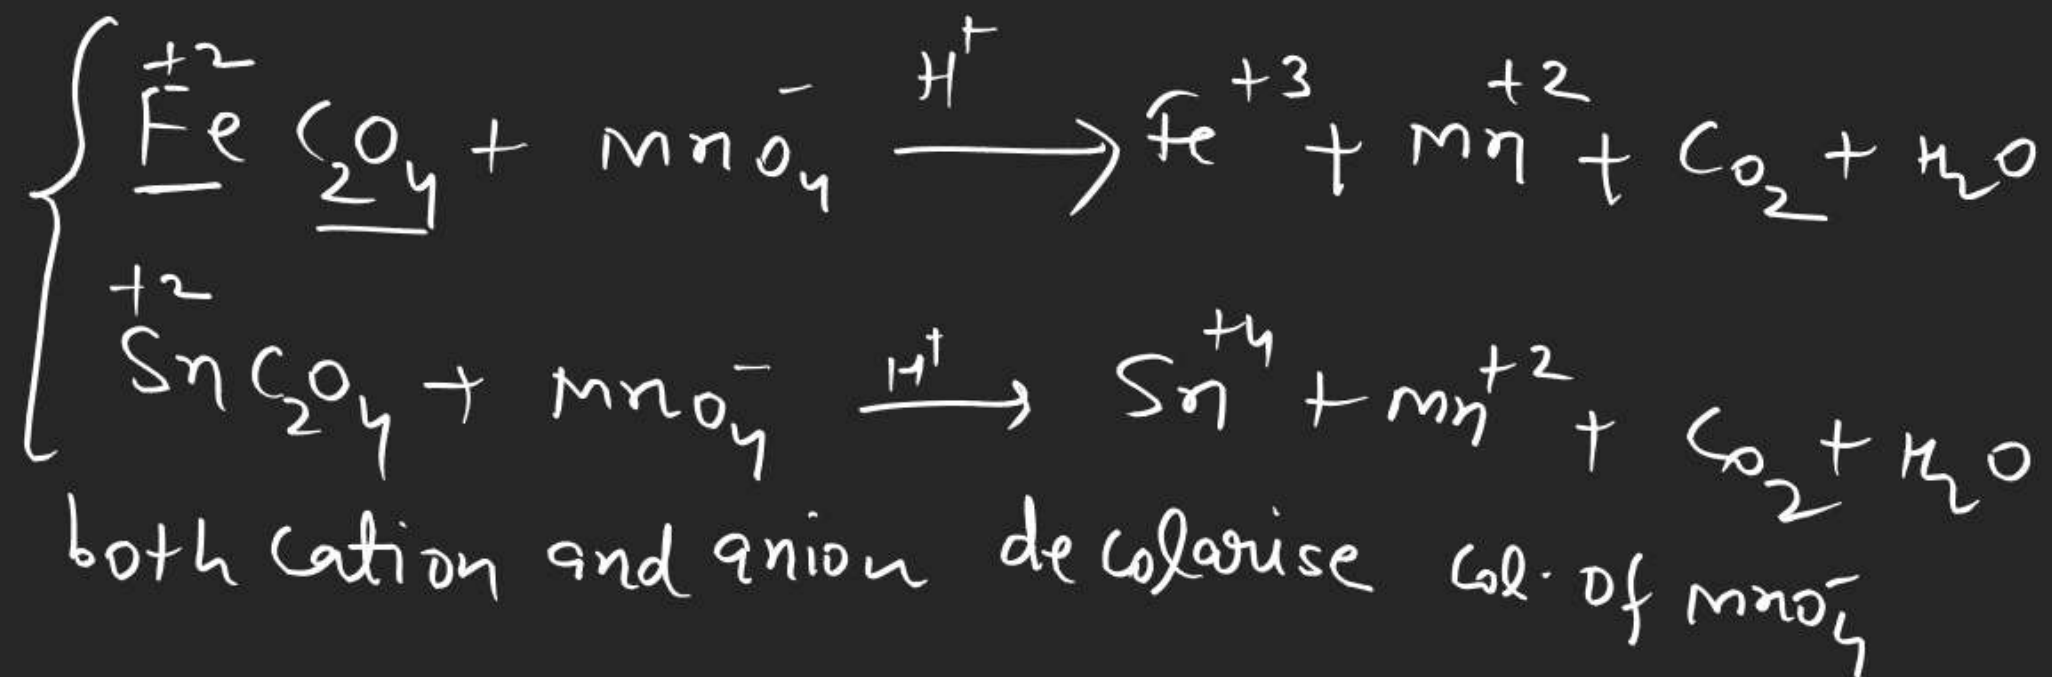 +2
Fe C2O4 + mnO4^- —H^+→ Fe^+3 + Mn^+2 + CO2 + H2O
+2
SnC2O4 + MnO4^- —H^+→ Sn^+4 + mn^+2 + CO2 + H2O
both cation and anion decolarise col. of mnO4^-